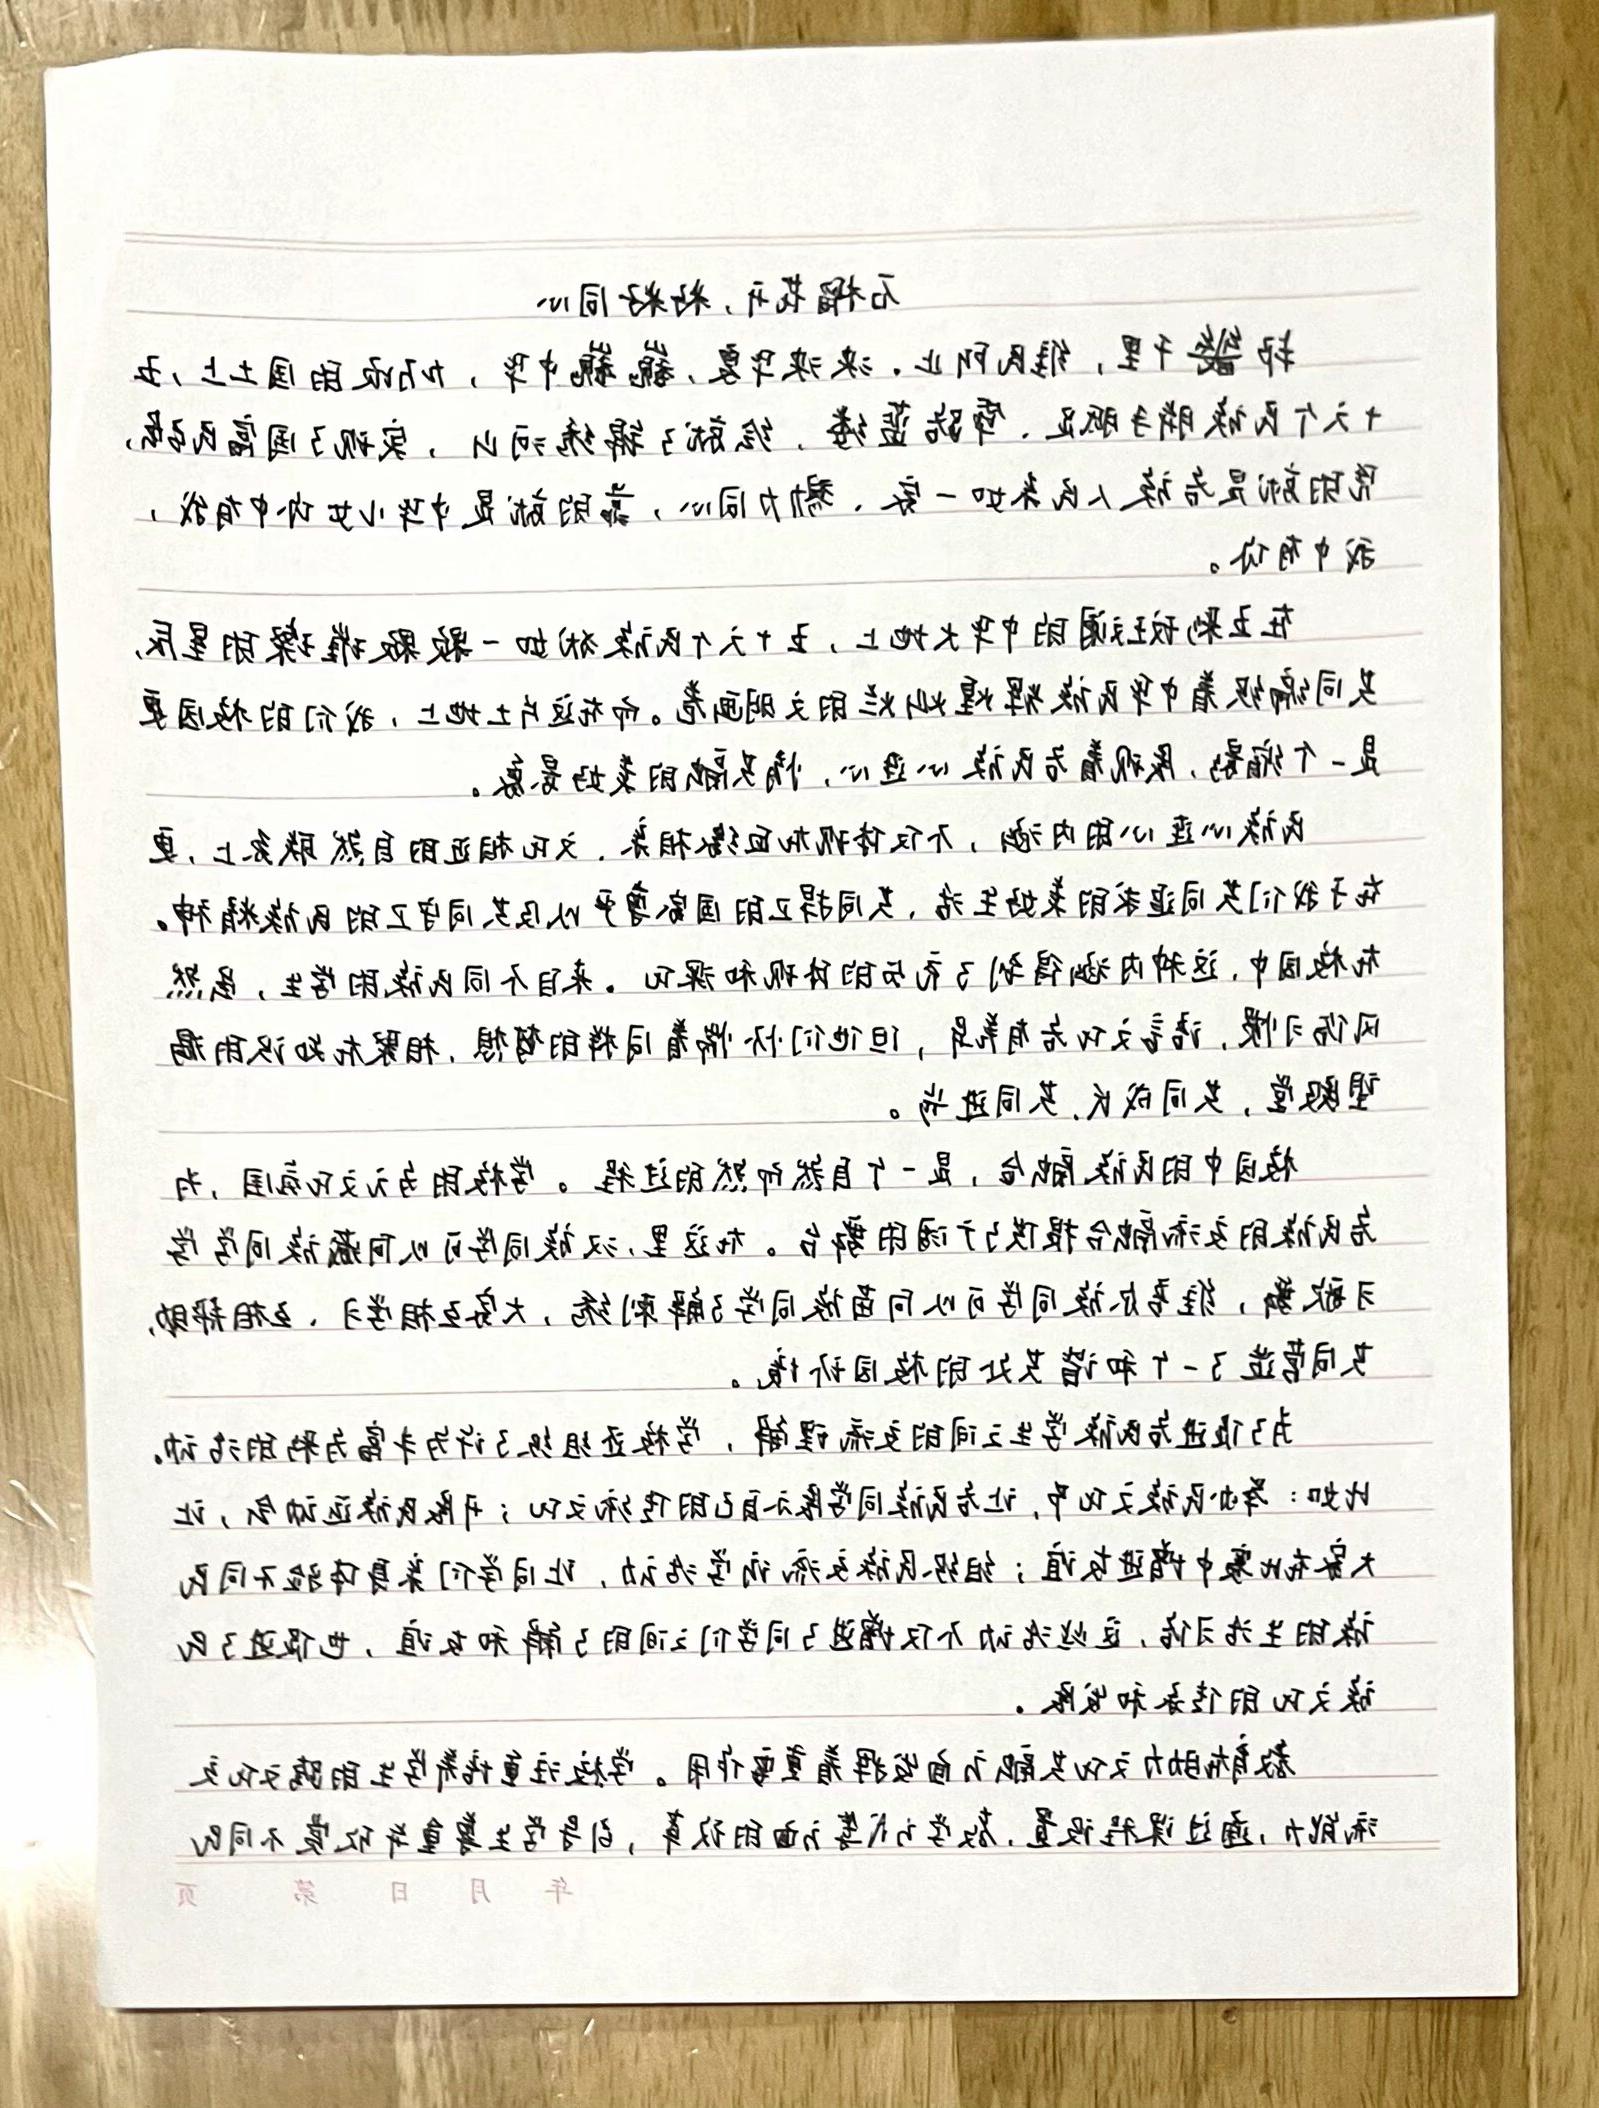 石榴花开，籽籽同心
邦畿千里，维民所止。泱泱华夏，巍巍中华，广阔的国土上，五
十六个民族胼手胝足、筚路蓝缕，绘就了锦绣河山，实现了国富民强，
凭的就是各族人民亲如一家、勠力同心，靠的就是中华儿女你中有我，
我中有你。
在五彩斑斓的中华大地上，五十六个民族犹如一颗颗璀璨的星辰，
共同编织着中华民族辉煌灿烂的文明画卷。而在这片土地上，我们的校园更
是一个缩影，展现着各民族心连心，情共融的美好景象。
民族心连心的内涵，不仅体现在血缘相亲、文化相近的自然联系上，更
在于我们共同追求的美好生活，共同捍卫的国家尊严以及共同守卫的民族精神。
在校园中，这种内涵得到了充分的体现和深化。来自不同民族的学生，虽然
风俗习惯，语言文化各有差异，但他们怀揣着同样的梦想，相聚在知识的
殿堂，共同成长，共同进步。
校园中的民族融合，是一个自然而然的过程。学校的多元文化氛围，为
各民族的交流融合提供了广阔的舞台。在这里，汉族同学可以向藏族同学学
习歌舞，维吾尔族同学可以向苗族同学了解刺绣，大家互相学习、互相帮助，
共同营造了一个和谐共处的校园环境。
为了促进各民族学生之间的交流理解，学校还组织了许多丰富多彩的活动。
比如：举办民族文化节，让各民族同学展示自己的传统文化；开展民族运动会，让
大家在比赛中增进友谊；组织民族交流访学活动，让同学们亲身体验不同民
族的生活习俗，这些活动不仅增进了同学们之间的了解和友谊，也促进了民
族文化的传承和发展。
教育在助力文化共融方面发挥着重要作用。学校注重培养学生的跨文化交
流能力，通过课程设置，教学方式等方面的改革，引导学生尊重并欣赏不同民
年 月 日 第 页